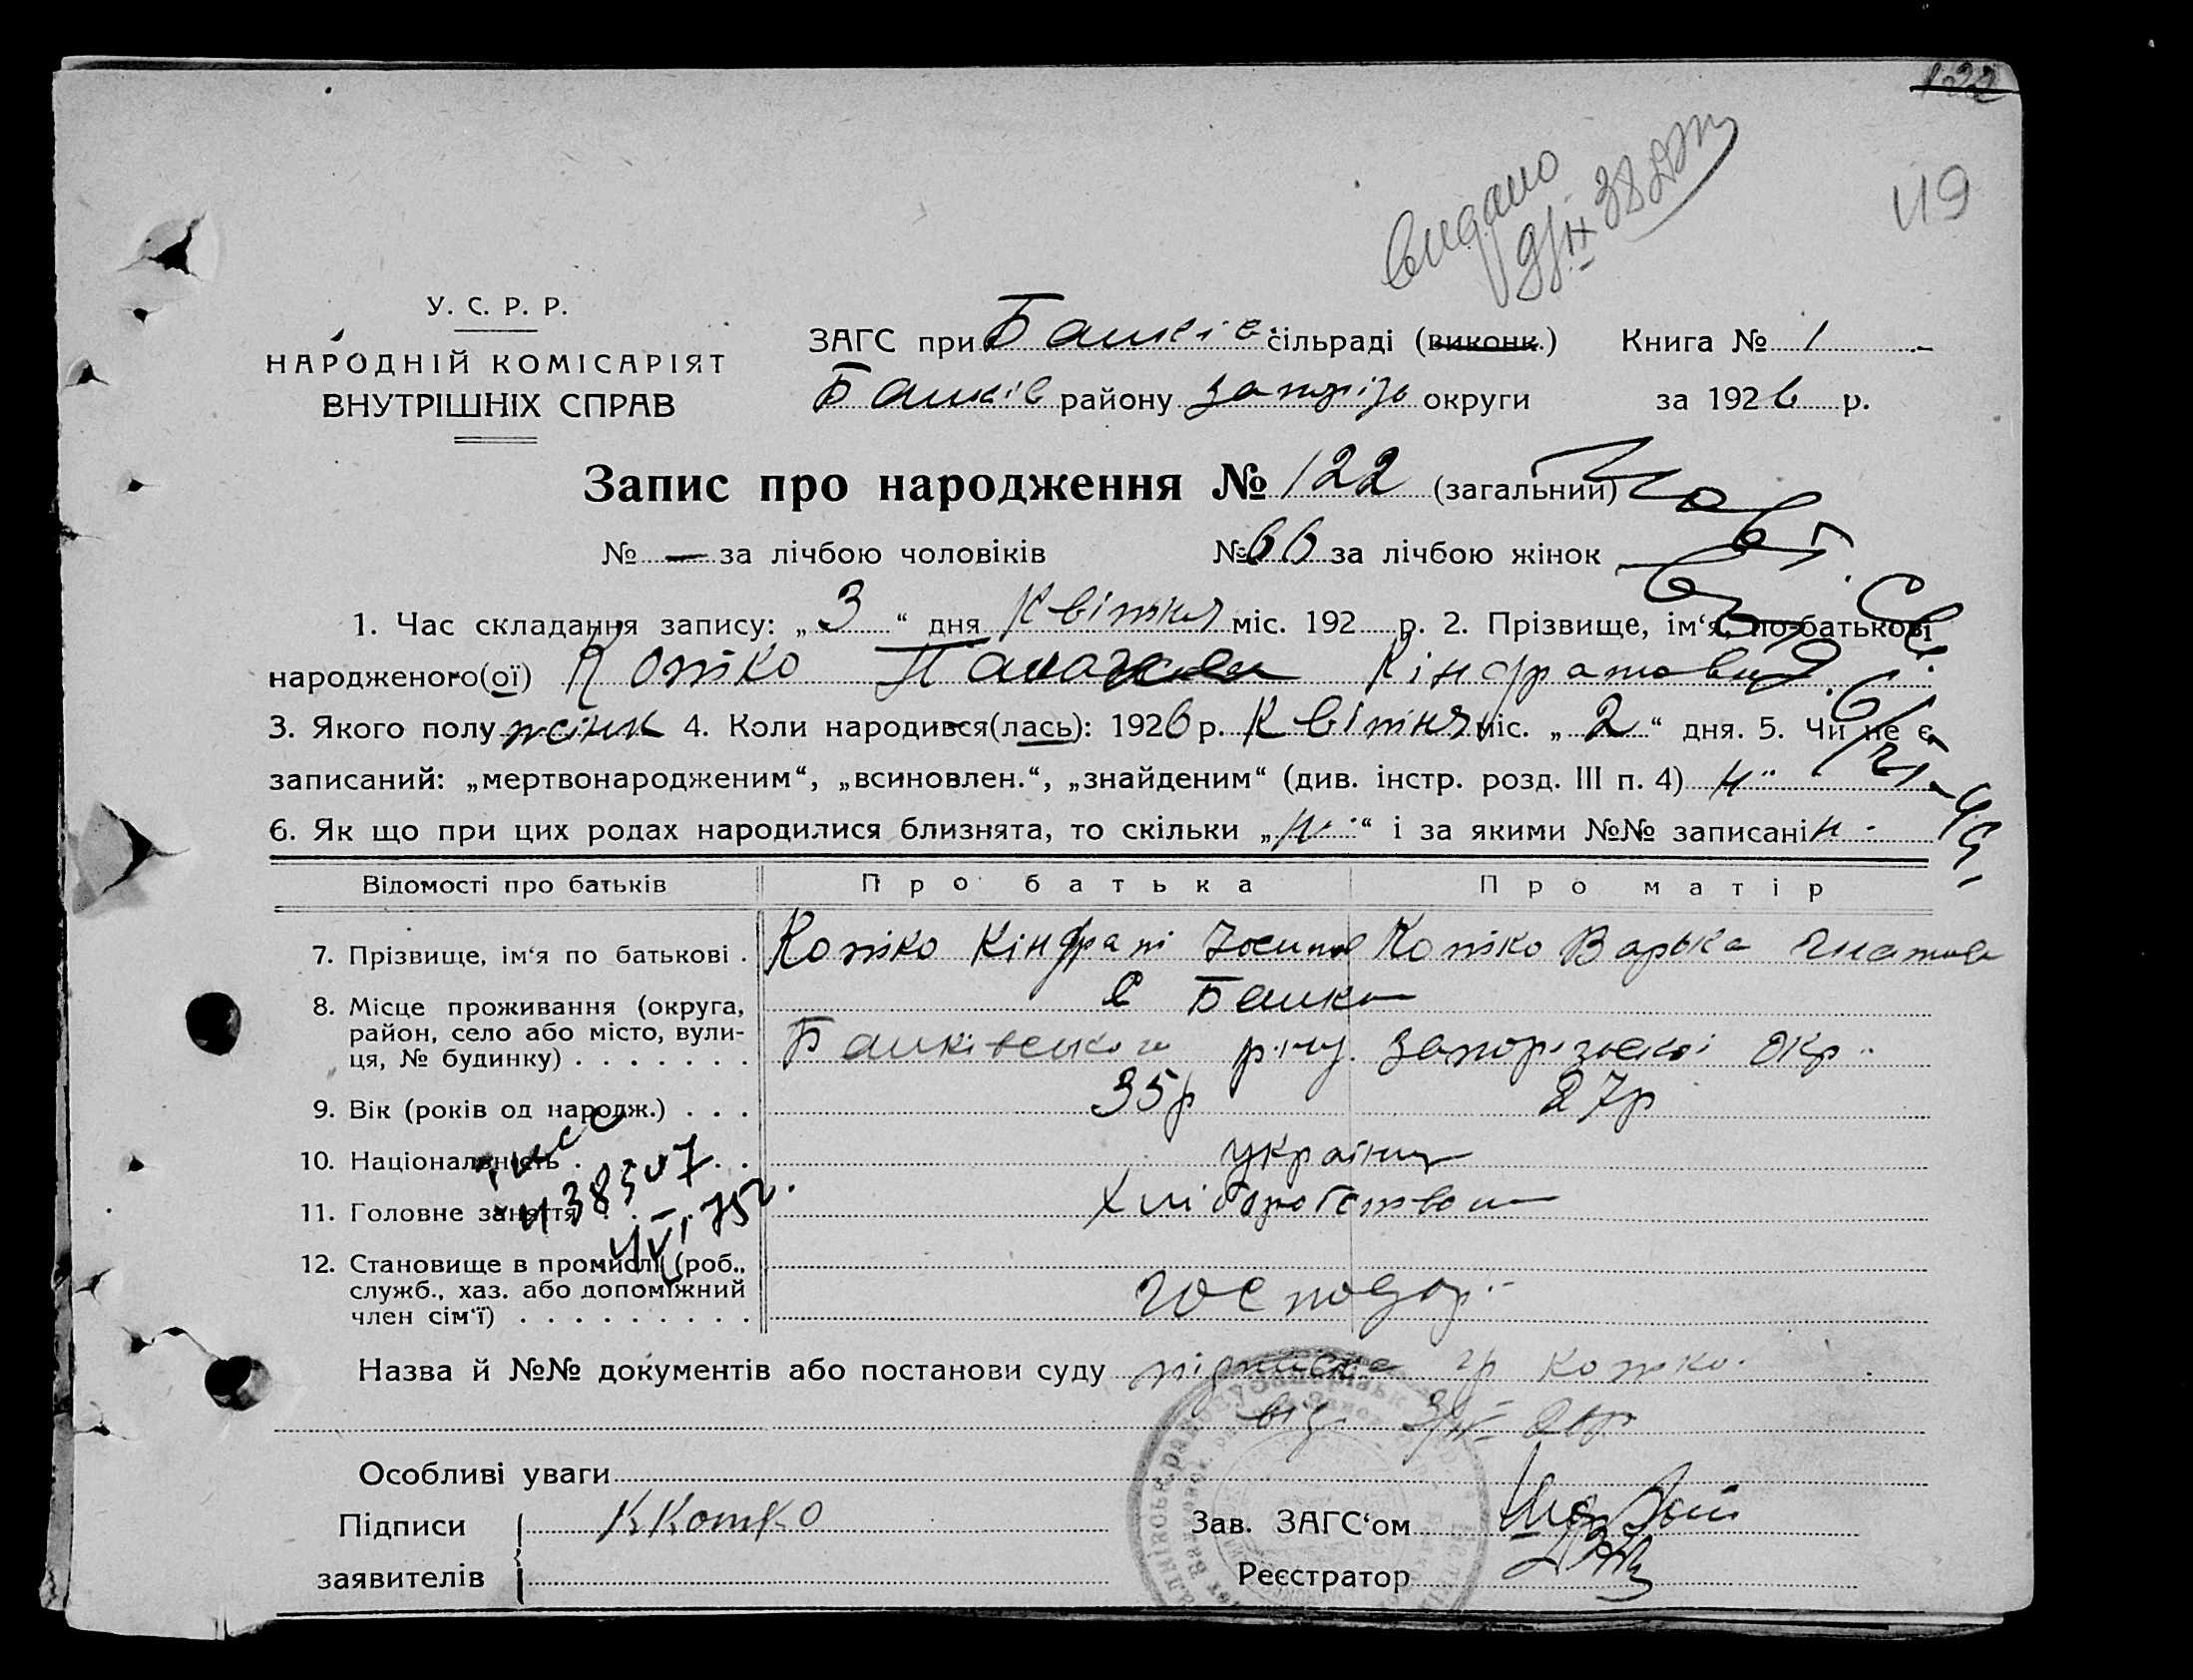 122
119
видано
9/IX 38
У. С. Р. Р.
НАРОДНІЙ КОМІСАРІЯТ
ВНУТРІШНІХ СПРАВ
ЗАГС при Балків сільраді (виконк.) Книга № 1
Балків району Запоріз округи за 1926 р.
Запис про народження № 122 (загальний)
№ — за лічбою чоловіків № 66 за лічбою жінок
1. Час складання запису: „ 3 “ дня Квітня міс. 192 р. 2. Прізвище, ім‘я, по-батькові
народженого(ої) Котко Палажка Кіндратовна
3. Якого полу жінк 4. Коли народився(лась): 1926 р. Квітня міс. „ 2 “ дня. 5. Чи не є
записаний: „мертвонародженим“, „всиновлен.“, „знайденим“ (див. інстр. розд. III п. 4) н
6. Як що при цих родах народилися близнята, то скільки „ н “ і за якими №№ записані н
Відомості про батьків Про батька Про матір
7. Прізвище, ім‘я по батькові . Котко Кіндрат Йосипов Котко Варька Гнатов
8. Місце проживання (округа, с Балки
район, село або місто, вули-
ця, № будинку) . . . . . . . Балківського р-ну Запорізської окр.
9. Вік (років од народж.) . . . 35р 27р
10. Національність . українці
11. Головне заняття Хліборобство
438507
12. Становище в промислі (роб.,
служб., хаз. або допоміжний
член сім‘ї) . . . . . . . . . господар.
Назва й №№ документів або постанови суду підписка гр Котко.
від 3/IV 26р
Особливі уваги
Підписи К Котко Зав. ЗАГС‘ом
заявителів Реєстратор